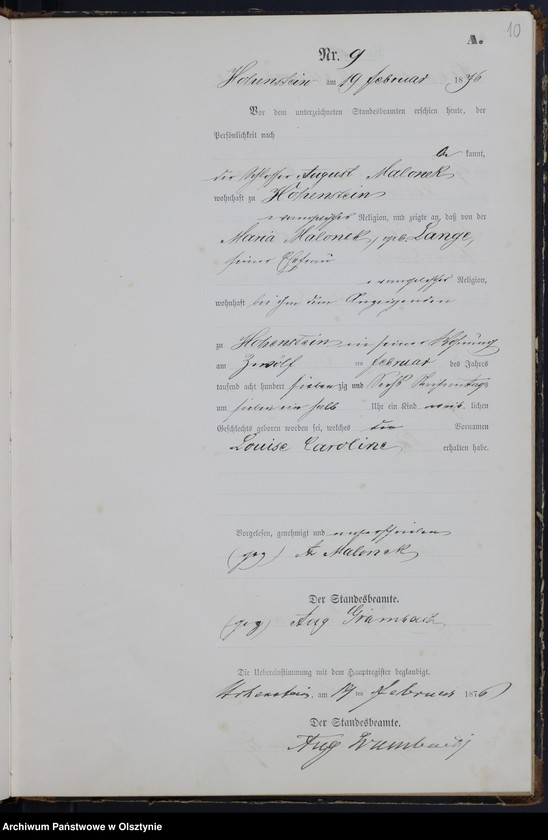 10
A.
Nr. 9
Hohenstein am 19 Februar 1876
Vor dem unterzeichneten Standesbeamten erschien heute, der
Persönlichkeit nach
be kannt,
der Schlosser August Malonek
wohnhaft zu Hohenstein
evangelischer Religion, und zeigte an, daß von der
Maria Malonek, geb. Lange,
seiner Ehefrau
evangelischer Religion,
wohnhaft bei ihm dem Anzeigenden
zu Hohenstein in seiner Wohnung
am Zwölf ten Februar des Jahres
tausend acht hundert sieben zig und Sechs Vormittags
um sieben ein halb Uhr ein Kind weib lichen
Geschlechts geboren worden sei, welches die Vornamen
Louise Caroline erhalten habe.
Vorgelesen, genehmigt und unterschrieben
(gez) A Malonek
Der Standesbeamte.
(gez) Aug
Die Uebereinstimmung mit dem Hauptregister beglaubigt.
Hohenstein, am 19 ten Februar 1876
Der Standesbeamte.
Aug
Archiwum Państwowe w Olsztynie